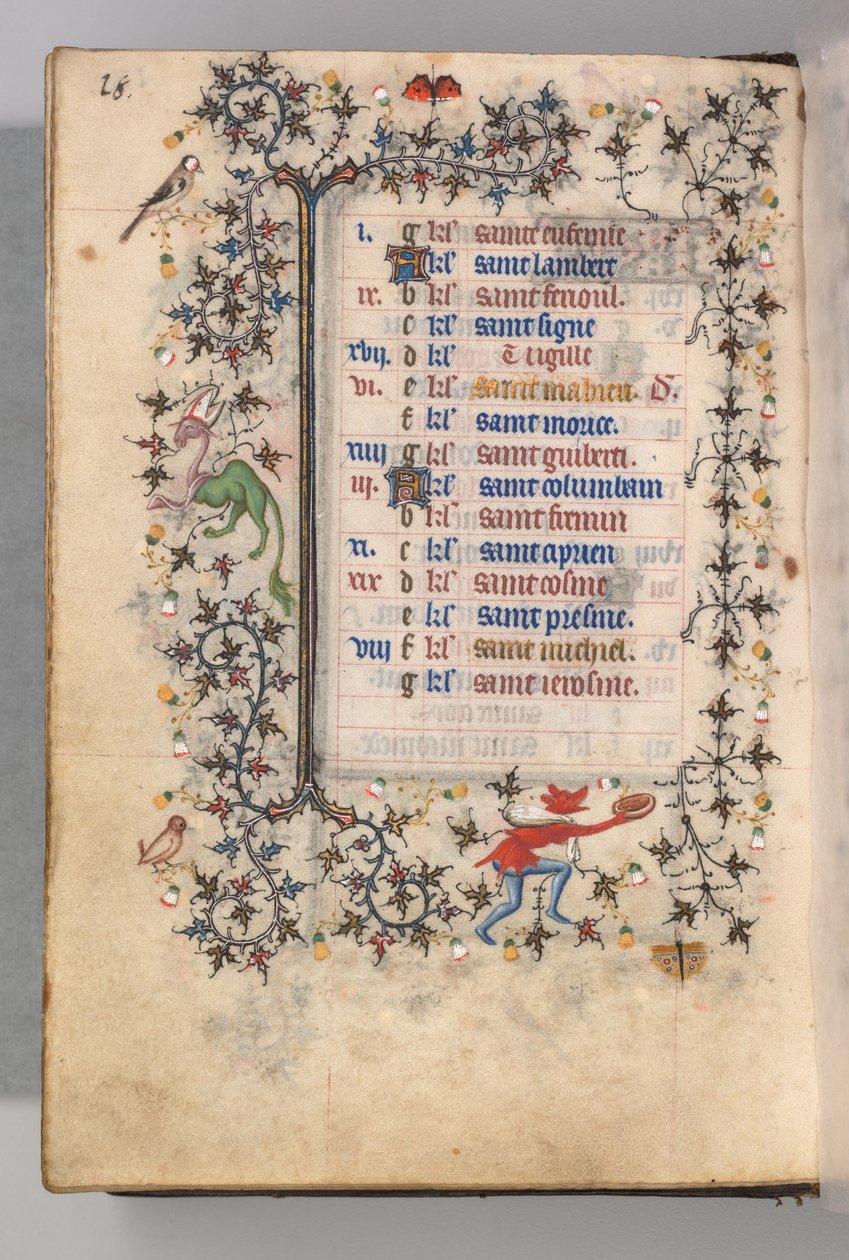 18.
i. g kl' sainte eufemie
A kl' saint lambert
ix. b kl' saint ferioul.
c kl' saint signe
xvij. d kl' vigille
vi. e kl' saint mahieu. D.
f kl' saint morice.
xiiij g kl' saint guiberti.
iij. A kl' saint columbain
b kl' saint firmin
xi. c kl' saint ciprien
xix d kl' saint cosme
e kl' saint presme.
viij f kl' saint michiel.
g kl' saint ierosme.